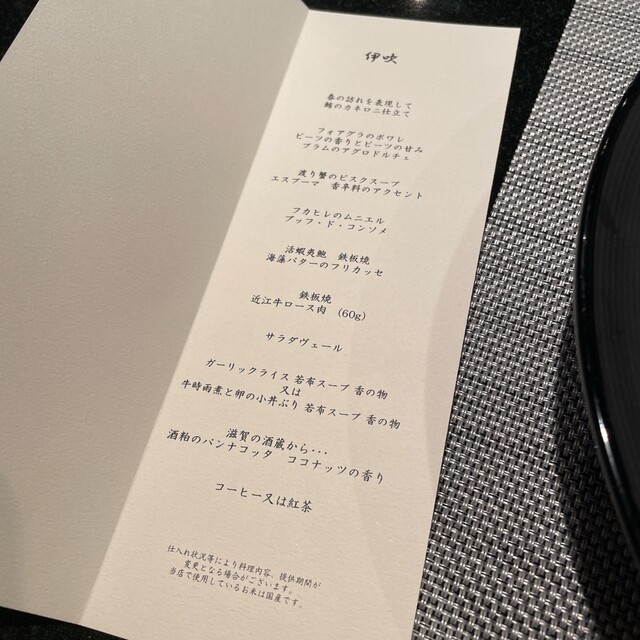 伊吹
春の訪れを表現して
鮪のカネロニ仕立て
フォアグラのポワレ
ビーツの香りとビーツの甘み
プラムのアグロドルチェ
渡り蟹のビスクスープ
エスプーマ 香辛料のアクセント
フカヒレのムニエル
ブッフ・ド・コンソメ
活蝦夷鮑 鉄板焼
海藻バターのフリカッセ
鉄板焼
近江牛ロース肉 (60g)
サラダヴェール
ガーリックライス 若布スープ 香の物
又は
牛時雨煮と卵の小丼ぶり 若布スープ 香の物
滋賀の酒蔵から・・・
酒粕のパンナコッタ ココナッツの香り
コーヒー又は紅茶
仕入れ状況等により料理内容、提供期間が
変更となる場合がございます。
当店で使用しているお米は国産です。